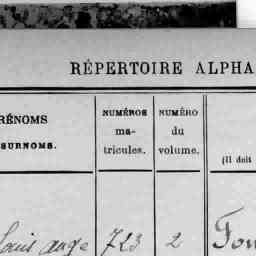 RÉPERTOIRE ALPHA
RÉNOMS
SURNOMS.
NUMÉROS
ma-
tricules.
NUMÉRO
du
volume.
(Il doit
Louis ange 723 2